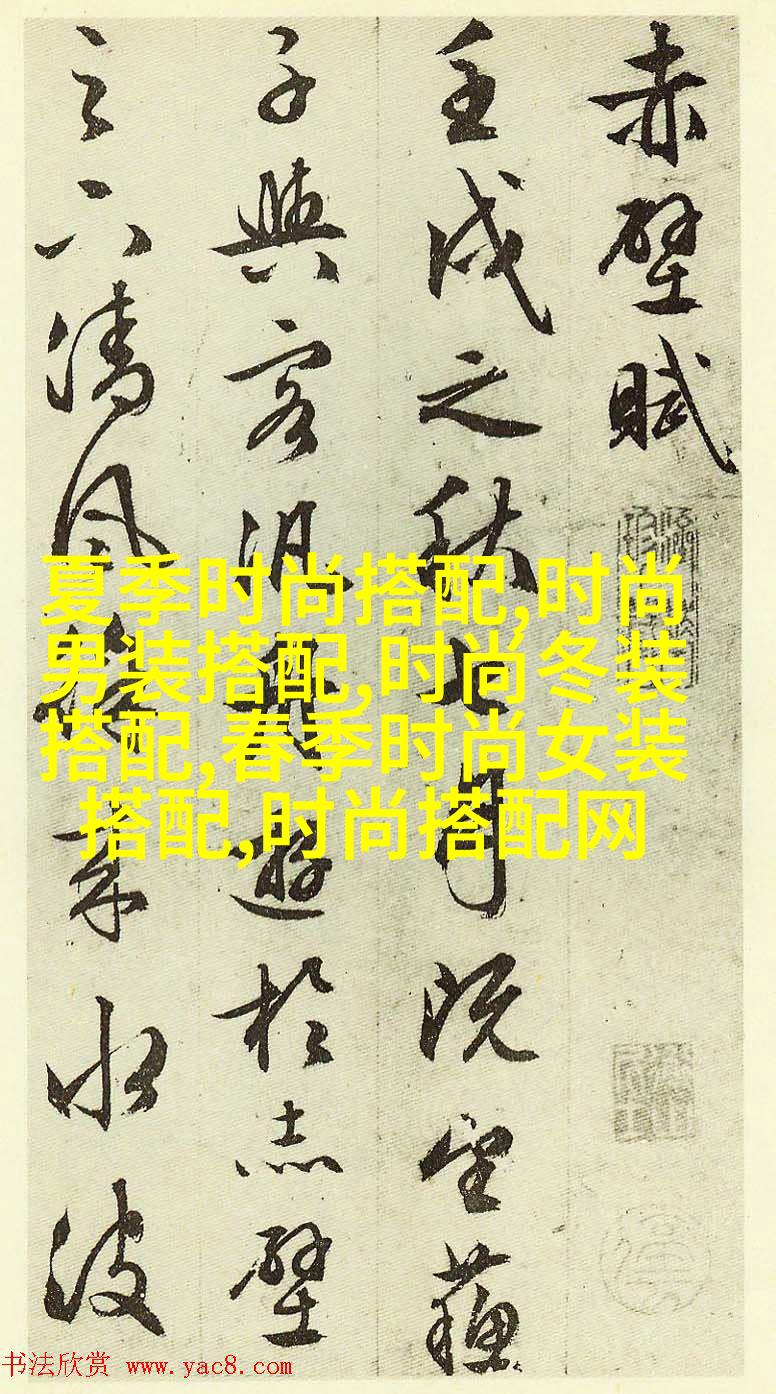 赤壁賦
壬戌之秋七月既望蘇
子與客汎舟遊於赤壁
之下清風徐來水波
夏季时尚搭配,时尚
男装搭配,时尚冬装
搭配,春季时尚女装
搭配,时尚搭配网
书法欣赏 www.yac8.com